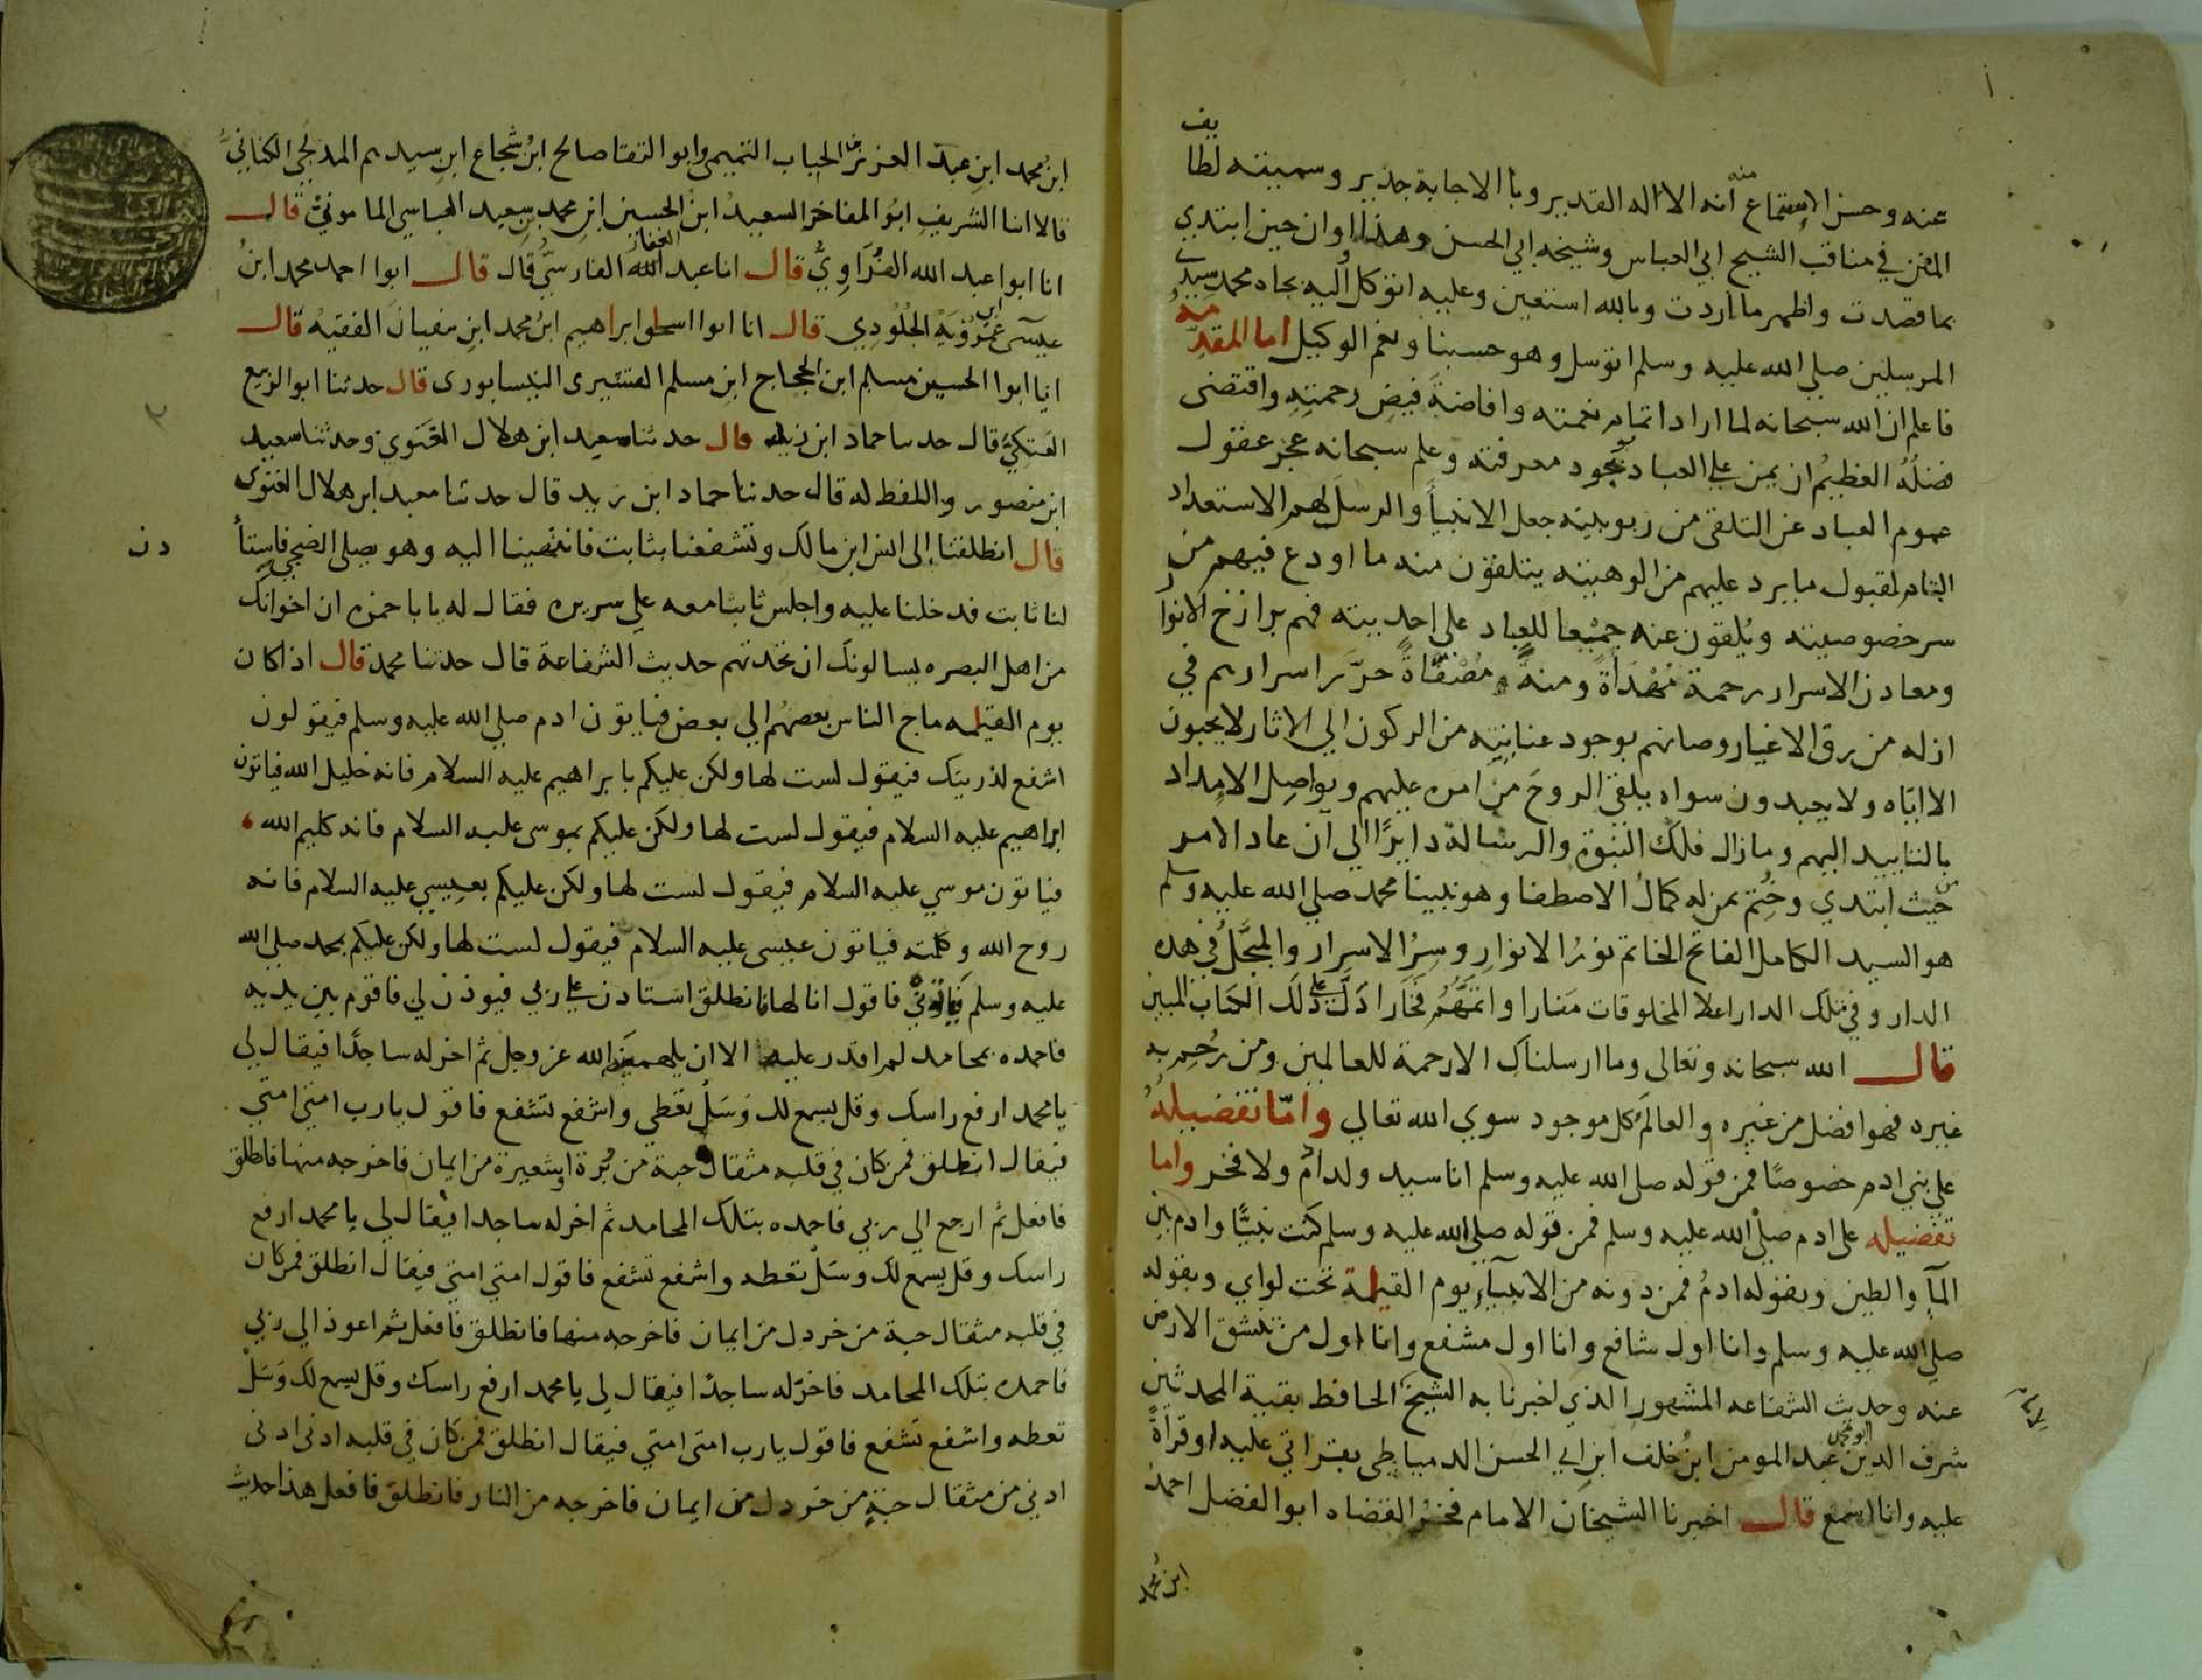 عنه وحسن الاستماع منه انه الاله القدير وبالاجابة جدير وسميته لطايف
المنن في مناقب الشيخ ابي العباس وشيخه ابي الحسن وهذا اوان حين ابتدي
بما قصدت واظهر ما اردت وبالله استعين وعليه اتوكل واليه بجاه محمد سيد
المرسلين صلي الله عليه وسلم اتوسل وهو حسبنا ونعم الوكيل اما المقدمة
فاعلم ان الله سبحانه لما اراد اتمام نعمته وافاضة فيض رحمته واقتضى
فضله العظيم ان يمن علي العباد بوجود معرفته وعلم سبحانه عجز عقول
عموم العباد عن التلقي من ربوبيته جعل الانبيأ والرسل لهم الاستعداد
التام لقبول ما يرد عليهم من الوهيته يتلقون منه ما اودع فيهم من
سر خصوصيته ويلقون عنه جميعا للعباد علي احديته فهم برازخ الانوار
ومعادن الاسرار رحمة مهداة ومنة مصفاة حرر اسرارهم في
ازله من رق الاغيار وصانهم بوجود عنايته من الركون الي الاثار لا يحبون
الا اياه ولا يعبدون سواه يلقي الروح من امره عليهم ويواصل الامداد
بالتاييد اليهم وما زال فلك النبوة والرسالة دايرًا الي ان عاد الامر
من حيث ابتدي وختم بمن له كمال الاصطفا وهو نبينا محمد صلي الله عليه وسلم
هو السيد الكامل الفاتح الخاتم نور الانوار وسر الاسرار والمبجل في هذه
الدار وفي تلك الدار اعلا المخلوقات منارا واتمهم فخارا دل علي ذلك الكتاب المبين
قال الله سبحانه وتعالى وما ارسلناك الا رحمة للعالمين ومن رحم به
غيره فهو افضل من غيره والعالم كل موجود سوي الله تعالي واما تفضيله
علي بني ادم خصوصًا فمن قوله صلي الله عليه وسلم انا سيد ولد ادم ولا فخر واما
تفضيله علي ادم صلي الله عليه وسلم فمن قوله صلي الله عليه وسلم كنت نبيًا وادم بين
المآ والطين وبقوله ادم فمن دونه من الانبيآء يوم القيمة تحت لواي وبقوله
صلي الله عليه وسلم وانا اول شافع وانا اول مشفع وانا اول من تنشق الارض
عنه وحديث الشفاعه المشهور الذي اخبرنا به الشيخ الحافظ بقية المحدثين
شرف الدين ابو محمد عبد المومن ابن خلف ابن ابي الحسن الدمياطي بقراتي عليه او قراة
عليه وانا اسمع قال اخبرنا الشيخان الامام فخر القضاه ابو الفضل احمد
ابن محمد
ابن محمد ابن عبد العزيز الحباب التميمي وابو التقا صالح ابن شجاع ابن سيدهم المدلجي الكناني
قالا انا الشريف ابو المفاخر السعيد ابن الحسين ابن محمد بن سعيد العباسي الماموني قال
انا ابوا عبد الله الفراوي قال انا عبد الغفار الفارسي قال قال ابوا احمد محمد ابن
عيسى ابن عمرويه الجلودي قال انا ابوا اسحق ابراهيم ابن محمد ابن سفيان الفقيه قال
انا ابوا الحسين مسلم ابن الحجاج ابن مسلم القشيرى النيسابورى قال حدثنا ابو الربيع
العتكي قال حدثنا حماد ابن زيد قال حدثنا سعيد ابن هلال العنوي وحدثنا سعيد
ابن منصور واللفظ له قال حدثنا حماد ابن زيد قال حدثنا معبد ابن هلال العنوى
قال انطلقنا إلى انس ابن مالك وتشفعنا بثابت فانتهينا اليه وهو يصلي الضحي فاستأ
دن
لنا ثابت فدخلنا عليه واجلس ثابتا معه علي سريره فقال له يا با حمزه ان اخوانك
من اهل البصره يسالونك ان تحدثهم حديث الشفاعة قال حدثنا محمد قال اذا كان
يوم القيمه ماج الناس بعضهم إلي بعض فياتون ادم صلي الله عليه وسلم فيقولون
اشفع لذريتك فيقول لست لها ولكن عليكم بابراهيم عليه السلام فانه خليل الله فياتون
ابراهيم عليه السلام فيقول لست لها ولكن عليكم بموسى عليه السلام فانه كليم الله
فياتون موسي عليه السلام فيقول لست لها ولكن عليكم بعيسي عليه السلام فانه
روح الله وكلمته فياتون عيسى عليه السلام فيقول لست لها ولكن عليكم بمحمد صلي الله
عليه وسلم فياتوني فاقول انا لها فانطلق استادن علي ربي فيوذن لي فاقوم بين يديه
فاحمده بمحامد لم اقدر عليها الا ان يلهمنيها الله عز وجل ثم اخر له ساجدًا فيقال لي
يا محمد ارفع راسك وقل يسمع لك وسل تعطي واشفع تشفع فاقول يارب امتي امتي
فيقال انطلق فمن كان في قلبه مثقال حبة من برة او شعيرة من ايمان فاخرجه منها فانطلق
فافعل ثم ارجع الي ربي فاحمده بتلك المحامد ثم اخر له ساجدا فيقال لي يا محمد ارفع
راسك وقل يسمع لك وسل تعطه واشفع تشفع فاقول امتي امتي فيقال انطلق فمن كان
في قلبه مثقال حبة من خردل من ايمان فاخرجه منها فانطلق فافعل ثم اعوذ الي ربي
فاحمده بتلك المحامد فاخر له ساجدًا فيقال لي يا محمد ارفع راسك وقل يسمع لك وسل
تعطه واشفع تشفع فاقول يارب امتي امتي فيقال انطلق فمن كان في قلبه ادنى ادنى
ادني من مثقال حبة من خردل من ايمان فاخرجه من النار فانطلق فافعل هذا حديث